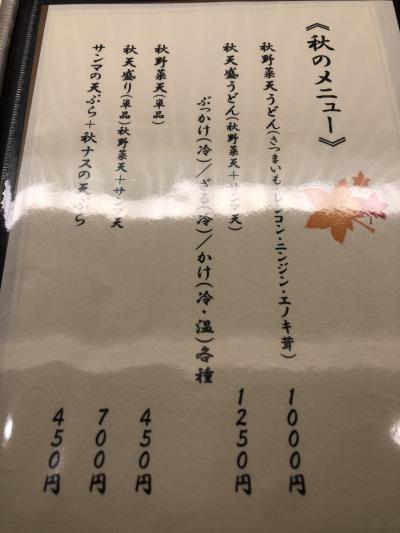 《秋のメニュー》
秋野菜天うどん(さつまいも・レンコン・ニンジン・エノキ茸) 1000円
秋天盛うどん(秋野菜天+サンマ天) 1250円
ぶっかけ(冷)/ざる(冷)/かけ(冷・温)各種
秋野菜天(単品) 450円
秋天盛り(単品)秋野菜天+サンマ天 700円
サンマの天ぷら+秋ナスの天ぷら 450円